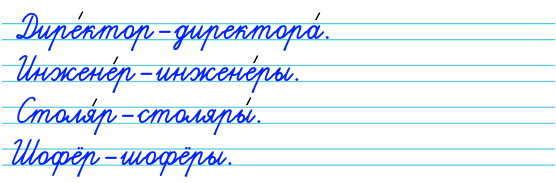 Дире́ктор – директора́.
Инжене́р – инжене́ры.
Столя́р – столяры́.
Шофёр – шофёры.